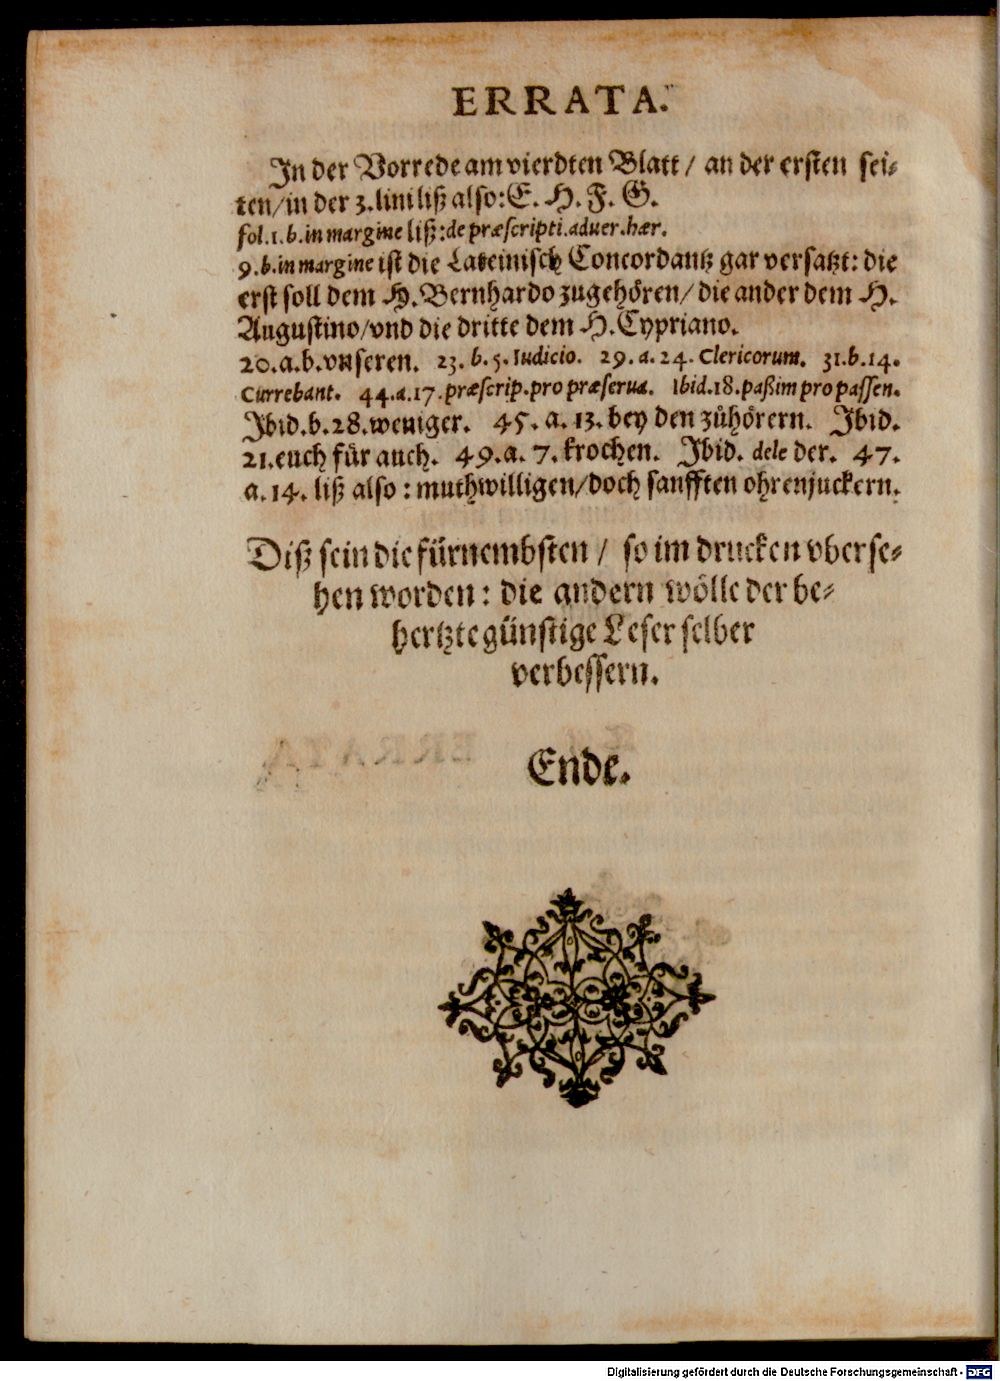 ERRATA.
In der Vorrede am vierdten Blatt / an der ersten sei-
ten / in der 3. lini liß also: E. H. F. G.
fol. 1. b. in margine liß: de præscripti. aduer. hær.
9. b. in margine ist die Lateinisch Concordantz gar versatzt: die
erst soll dem H. Bernhardo zugehören / die ander dem H.
Augustino / vnd die dritte dem H. Cypriano.
20. a. b. vnseren. 23. b. 5. Iudicio. 29. a. 24. Clericorum. 31. b. 14.
Currebant. 44. a. 17. præscrip. pro præserua. Ibid. 18. paßim pro passen.
Ibid. b. 28. weniger. 45. a. 13. bey den zůhörern. Ibid.
21. euch für auch. 49. a. 7. krochen. Ibid. dele der. 47.
a. 14. liß also: muthwilligen / doch sanfften ohrenjuckern.
Diß sein die fürnembsten / so im drucken vberse-
hen worden: die andern wölle der be-
hertzte günstige Leser selber
verbessern.
Ende.
Digitalisierung gefördert durch die Deutsche Forschungsgemeinschaft - DFG